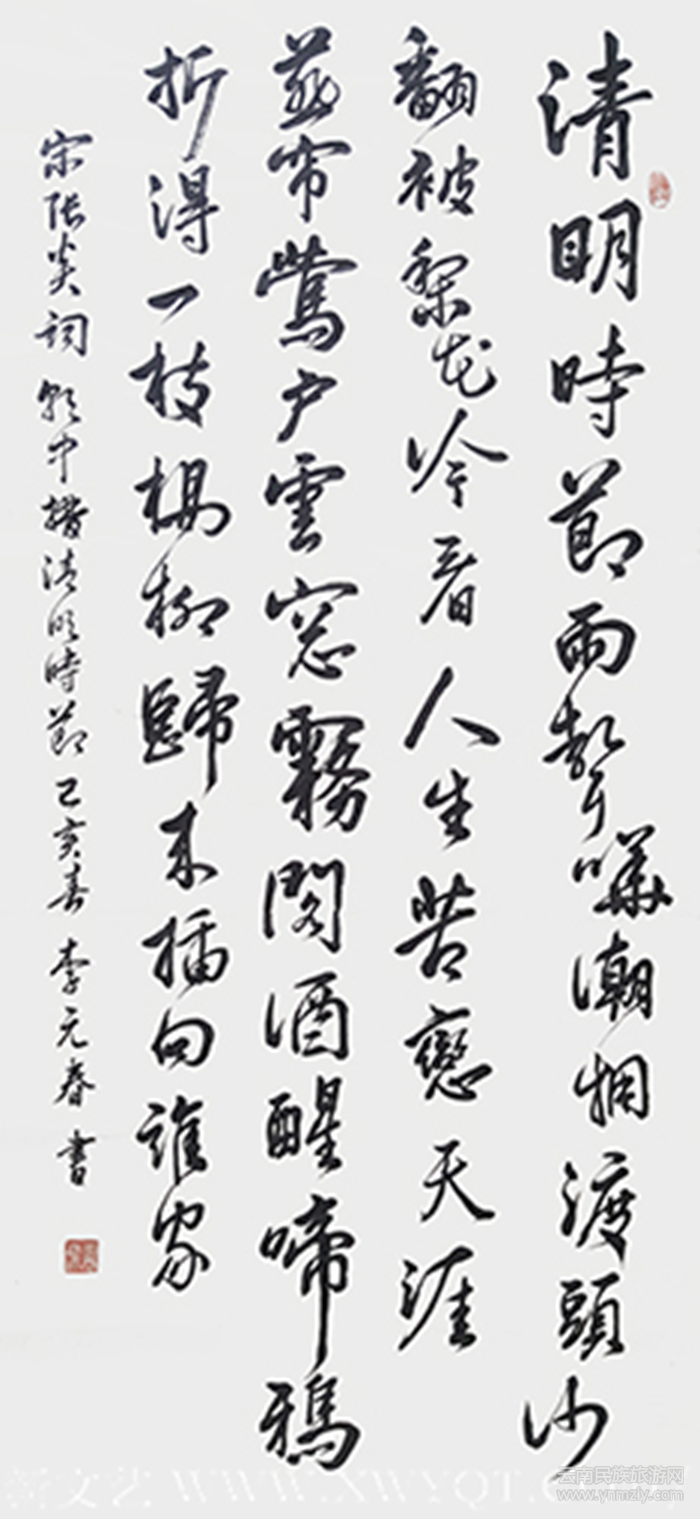 清明時節雨聲嘩潮拥渡頭沙
翻被梨花冷看人生苦戀天涯
燕帘鶯户雲窓霧閣酒醒啼鴉
折得一枝楊柳歸来插向誰家
宋張炎詞朝中措清明時節己亥春李元春書
文艺 WWW.XWYQT.C
云南民族旅游网
www.ynmzly.com